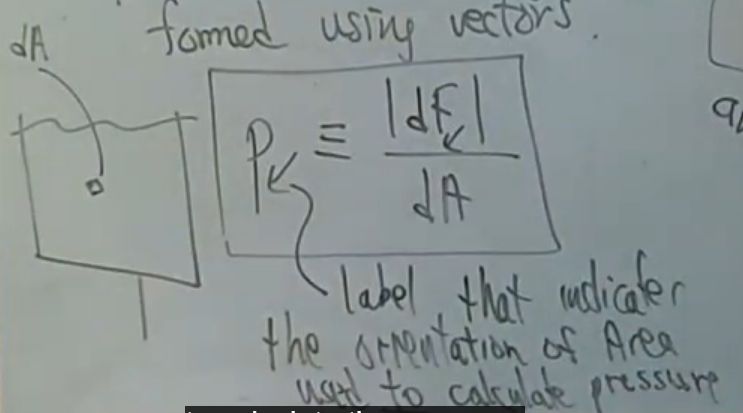 formed using vectors.
dA
P↙ ≡ |dF↙| / dA
label that indicates
the orientation of Area
used to calculate pressure